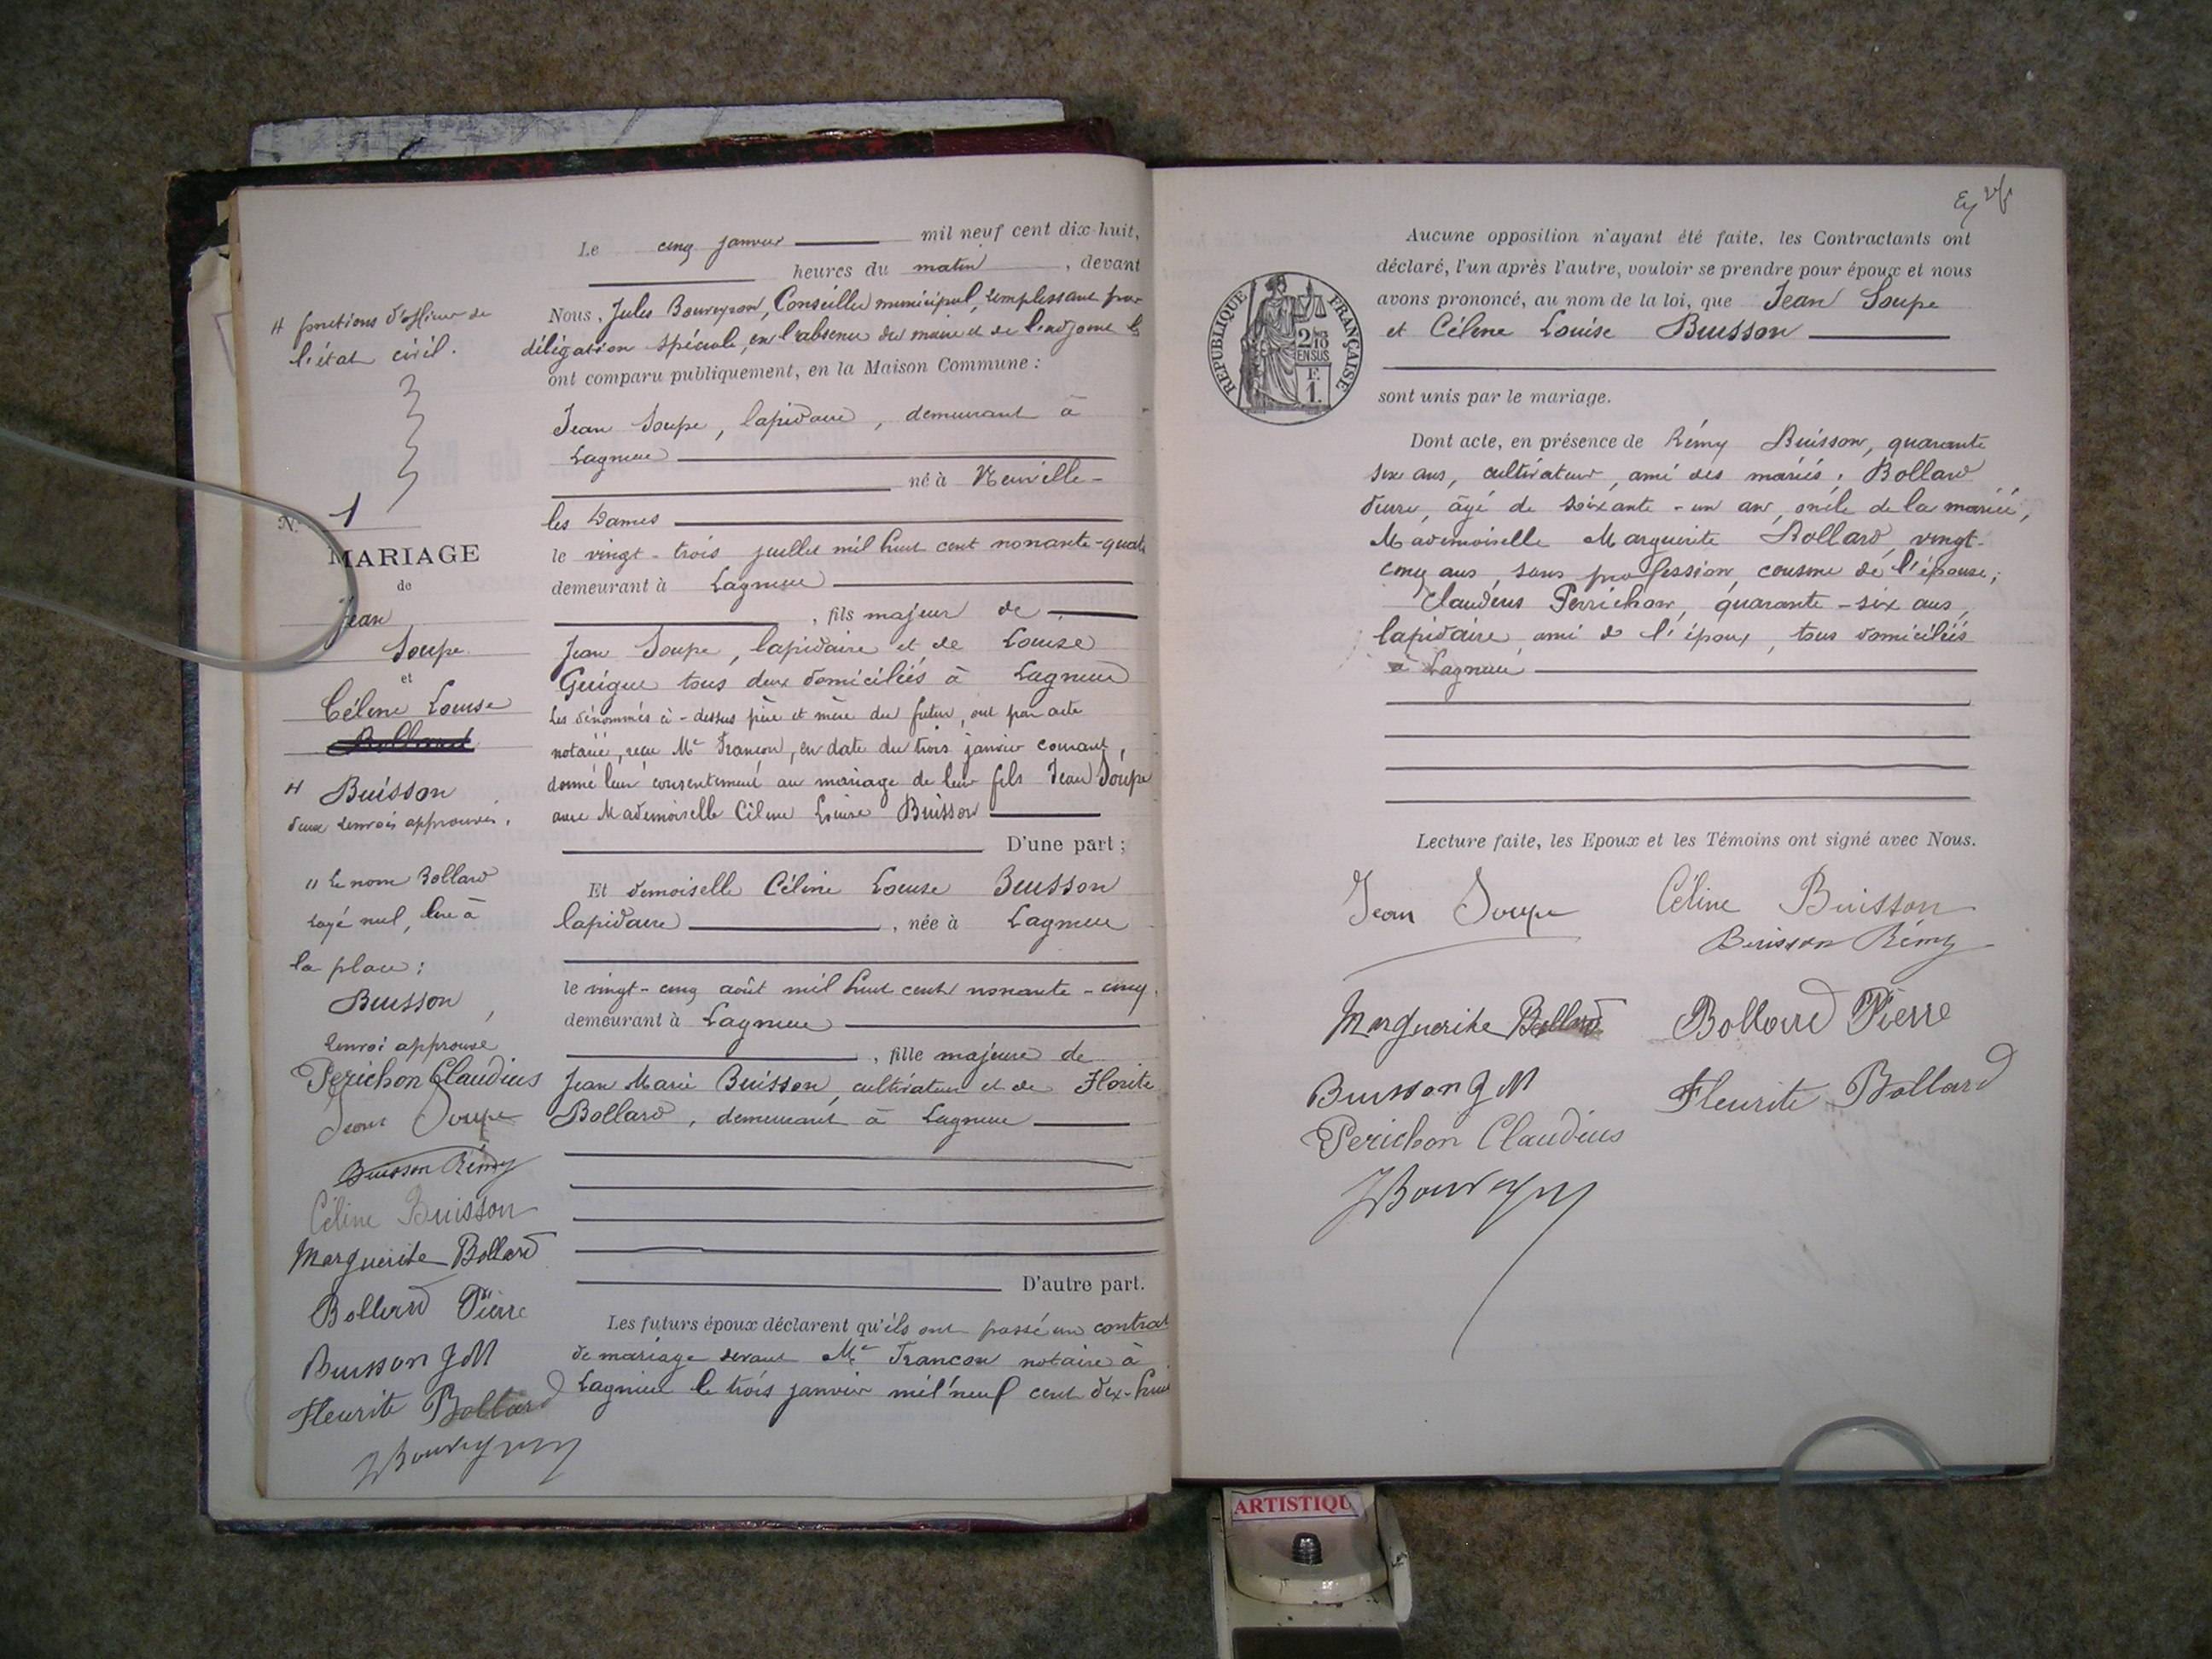 Le cinq janvier mil neuf cent dix-huit,
heures du matin, devant
Nous, Jules Bouveyron, Conseiller municipal, remplissant par
délégation spéciale, en l'absence du maire et de l'adjoint les
ont comparu publiquement, en la Maison Commune :
Jean Soupe, lapidaire, demeurant à
Lagnieu
né à Neuville-
les Dames
le vingt-trois juillet mil huit cent nonante-quatre
demeurant à Lagnieu
, fils majeur de
Jean Soupe, lapidaire et de Louise
Guigue tous deux domiciliés à Lagnieu
Les dénommés ci-dessus père et mère du futur, ont par acte
notarié, reçu Me Francon, en date du trois janvier courant,
donné leur consentement au mariage de leur fils Jean Soupe
avec Mademoiselle Céline Louise Buisson
D'une part ;
Et demoiselle Céline Louise Buisson
lapidaire, née à Lagnieu
le vingt-cinq août mil huit cent nonante-cinq,
demeurant à Lagnieu
, fille majeure de
Jean Marie Buisson, cultivateur et de Florite
Bollard, demeurant à Lagnieu
D'autre part.
Les futurs époux déclarent qu'ils ont passé un contrat
de mariage devant Me Francon notaire à
Lagnieu le trois janvier mil neuf cent dix-huit
H fonctions d'officier de
l'état civil.
N° 1
MARIAGE
de
Jean
Soupe
et
Céline Louise
Bollard
H Buisson
deux renvois approuvés.
" Le nom Bollard
rayé nul, lire à
la place :
Buisson,
renvoi approuvé
Perichon Claudius
Jean Soupe
Buisson Rémy
Céline Buisson
Marguerite Bollard
Bollard Pierre
Buisson J M
Fleurite Bollard
J Bouveyron
Aucune opposition n'ayant été faite, les Contractants ont
déclaré, l'un après l'autre, vouloir se prendre pour époux et nous
avons prononcé, au nom de la loi, que Jean Soupe
et Céline Louise Buisson
sont unis par le mariage.
RÉPUBLIQUE FRANÇAISE
2/10
EN SUS
F.
1.
Dont acte, en présence de Rémy Buisson, quarante
six ans, cultivateur, ami des mariés ; Bollard
Pierre, âgé de soixante-un an, oncle de la mariée,
Mademoiselle Marguerite Bollard, vingt-
cinq ans, sans profession, cousine de l'épouse ;
Claudius Perrichon, quarante-six ans,
lapidaire, ami de l'époux, tous domiciliés
à Lagnieu
Lecture faite, les Epoux et les Témoins ont signé avec Nous.
Jean Soupe Céline Buisson
Buisson Rémy
Marguerite Bollard Bollard Pierre
Buisson J M Fleurite Bollard
Perichon Claudius
J Bouveyron
ARTISTIQU